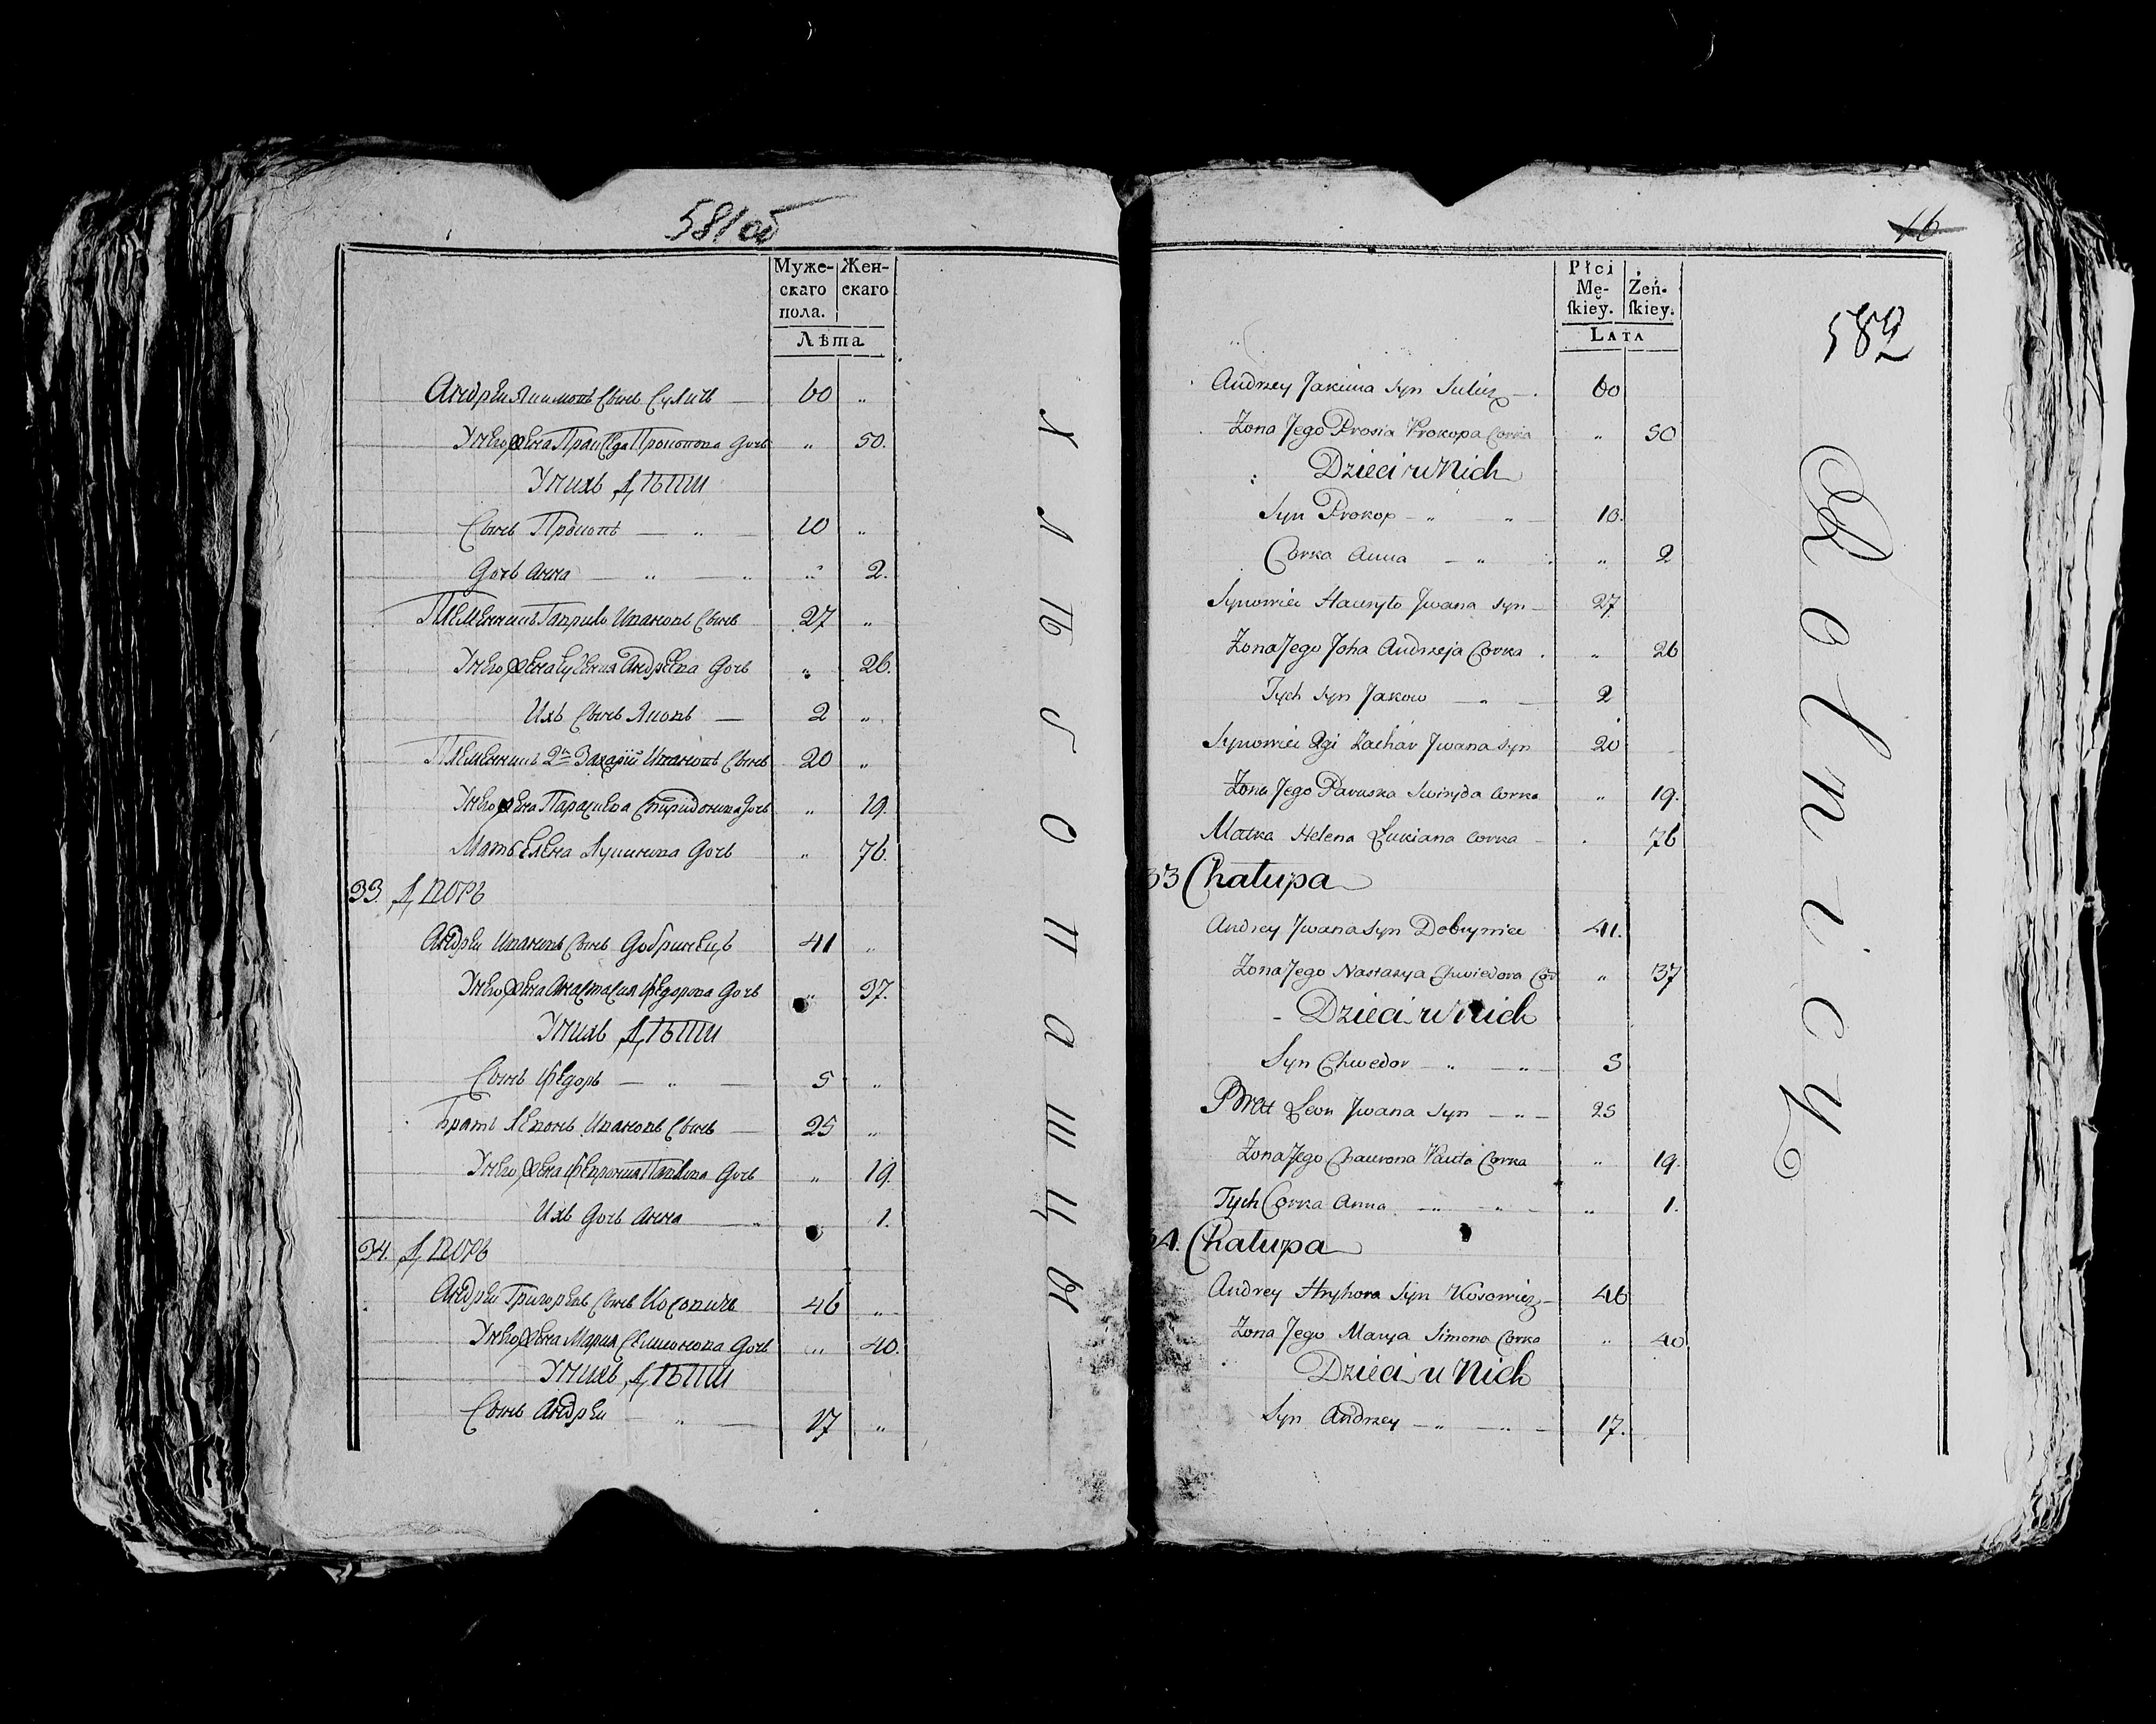 581об
Муже- Жен-
скаго скаго
пола.
Лѣта
Андрей Якимовъ Сынъ Суличь — 60 „
У него жена Праиседа Прокопова дочь „ 50.
У нихъ Дѣти
Сынъ Прокопъ — „ — 10 „
Дочь Анна — „ — „ „ 2.
Племенникъ Гаврило Ивановъ Сынъ 27 „
У него жена Еуѳения Андреева дочь „ 26.
Ихъ Сынъ Яковъ — 2 „
Племенникъ 2й Захарiй Ивановъ Сынъ 20 „
У него жена Параскева Спиридонова дочь „ 19.
Мать Елена Лукинова дочь „ 76.
33. Дворъ
Андрей Ивановъ Сынъ Добринецъ 41 „
У него жена Анастасия Федорова дочь „ 37.
У нихъ Дѣти
Сынъ Федоръ — „ — 5 „
Братъ Левонъ Ивановъ Сынъ — 25 „
У него жена Феврония Павлова дочь „ 19.
Ихъ дочь Анна — „ 1.
34. Дворъ
Андрей Григорьевъ Сынъ Косовичь 46 „
У него жена Мария Семионова дочь „ 40.
У нихъ Дѣти
Сынъ Андрей — „ — 17 „
16
582
Płci
Mę- Żeń-
ſkiey. ſkiey.
LATA
Andrzey Jakima Syn Sulicz — 60
Zona Jego Prosia Prokopa Corka „ 50
Dzieci u Nich
Syn Prokop — „ „ — 10.
Corka Anna — „ „ 2
Synowiec Hauryło Jwana Syn — 27
Zona Jego Joha Andrzeja Corka „ 26
Tych Syn Jakow — „ — 2
Synowiec 2gi Zachar Jwana Syn 20
Zona Jego Paraska Swiryda Corka „ 19.
Matka Helena Łukiana Corka — 76
33 Chałupa
Andrey Jwana Syn Dobryniec 41.
Zona Jego Nastazya Chwiedora Cor „ 37
Dzieci u Nich
Syn Chwedor — „ — „ — 5
Brat Leon Jwana Syn — „ — 25
Zona Jego Chaurona Pauła Corka „ 19.
Tych Corka Anna — „ — „ 1.
34. Chałupa
Andrey Hryhora Syn Kosowicz — 46
Zona Jego Marya Simona Corka „ 40.
Dzieci u Nich
Syn Andrzey — „ — „ — 17.
Rolnicy